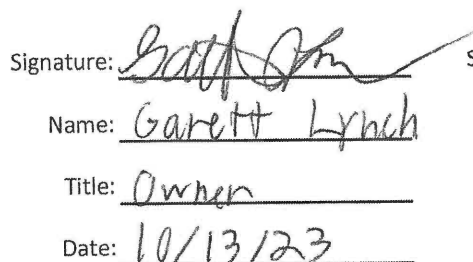 Signature:
Name: Garett Lynch
Title: Owner
Date: 10/13/23